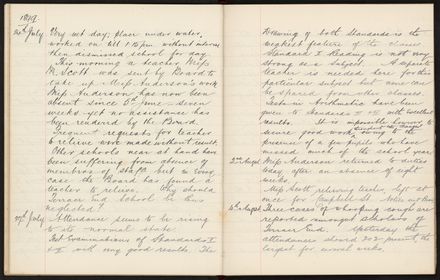 1899.
20th July Very wet day; place under water,
worked on till 1.15 p.m. without interval
then dismissed school for day.
This morning a teacher, Miss
M. Scott was sent by Board to
take up Miss Anderson's work.
Miss Anderson has now been
absent since 5th June - seven
weeks yet no assistance has
been rendered by the Board.
Frequent requests for teacher
to relieve were made without result.
Other schools near at hand have
been suffering from absence of
members of staff but in every
case the Board has found a
teacher to relieve. Why should
Terrace End School be thus
neglected?
27th July Attendance seems to be rising
to its normal state.
Held Examinations of Standards I
& II with very good results. The
Drawing of both Standards is the
weakest feature of the classes
Standard I Reading is not very
strong as a subject. A separate
teacher is needed here for this
particular subject but one cannot
be spared from other classes.
Tests in Arithmetic have been
given to Standards II to VI with excellent
results. It is impossible however to
secure good work owing to the
presence of a few pupils who have
missed much of the school year
2nd August Miss Anderson returned to duties
today after an absence of eight
weeks.
Miss Scott, relieving teacher, left at
once for Campbell St.
4th August Three cases of whooping cough are
reported amongst scholars of
Terrace End. Yesterday the
attendance showed 302 present, the
largest for several weeks.